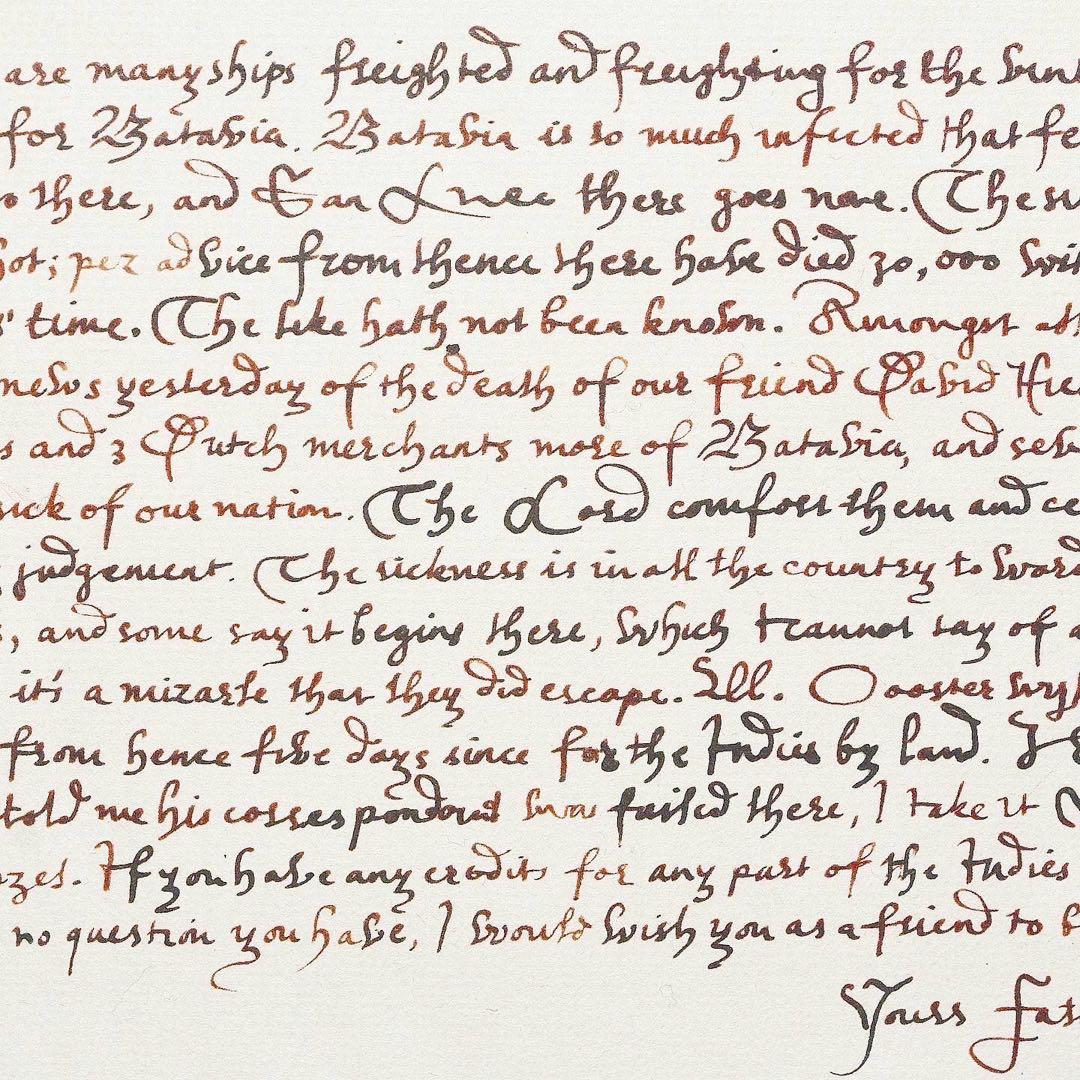 are many ships freighted and freighting for the vint
for Batavia. Batavia is so much infected that fe
o there, and San Luec there goes none. The su
hot; per advice from thence there have died 30,000 wit
s' time. The like hath not been known. Amongst oth
news yesterday of the death of our friend David Hie
s and 3 Dutch merchants more of Batavia, and seve
sick of our nation. The Lord comfort them and ce
judgement. The sickness is in all the country toward
s, and some say it begins there, which I cannot say of a
it's a mizarle that they did escape. Ill. Oooster wish
from hence five days since for the Indies by land. I
told me his correspondent was failed there, I take it
zes. If you have any credits for any part of the Indies
no question you have, I would wish you as a friend to b
Yours Fat